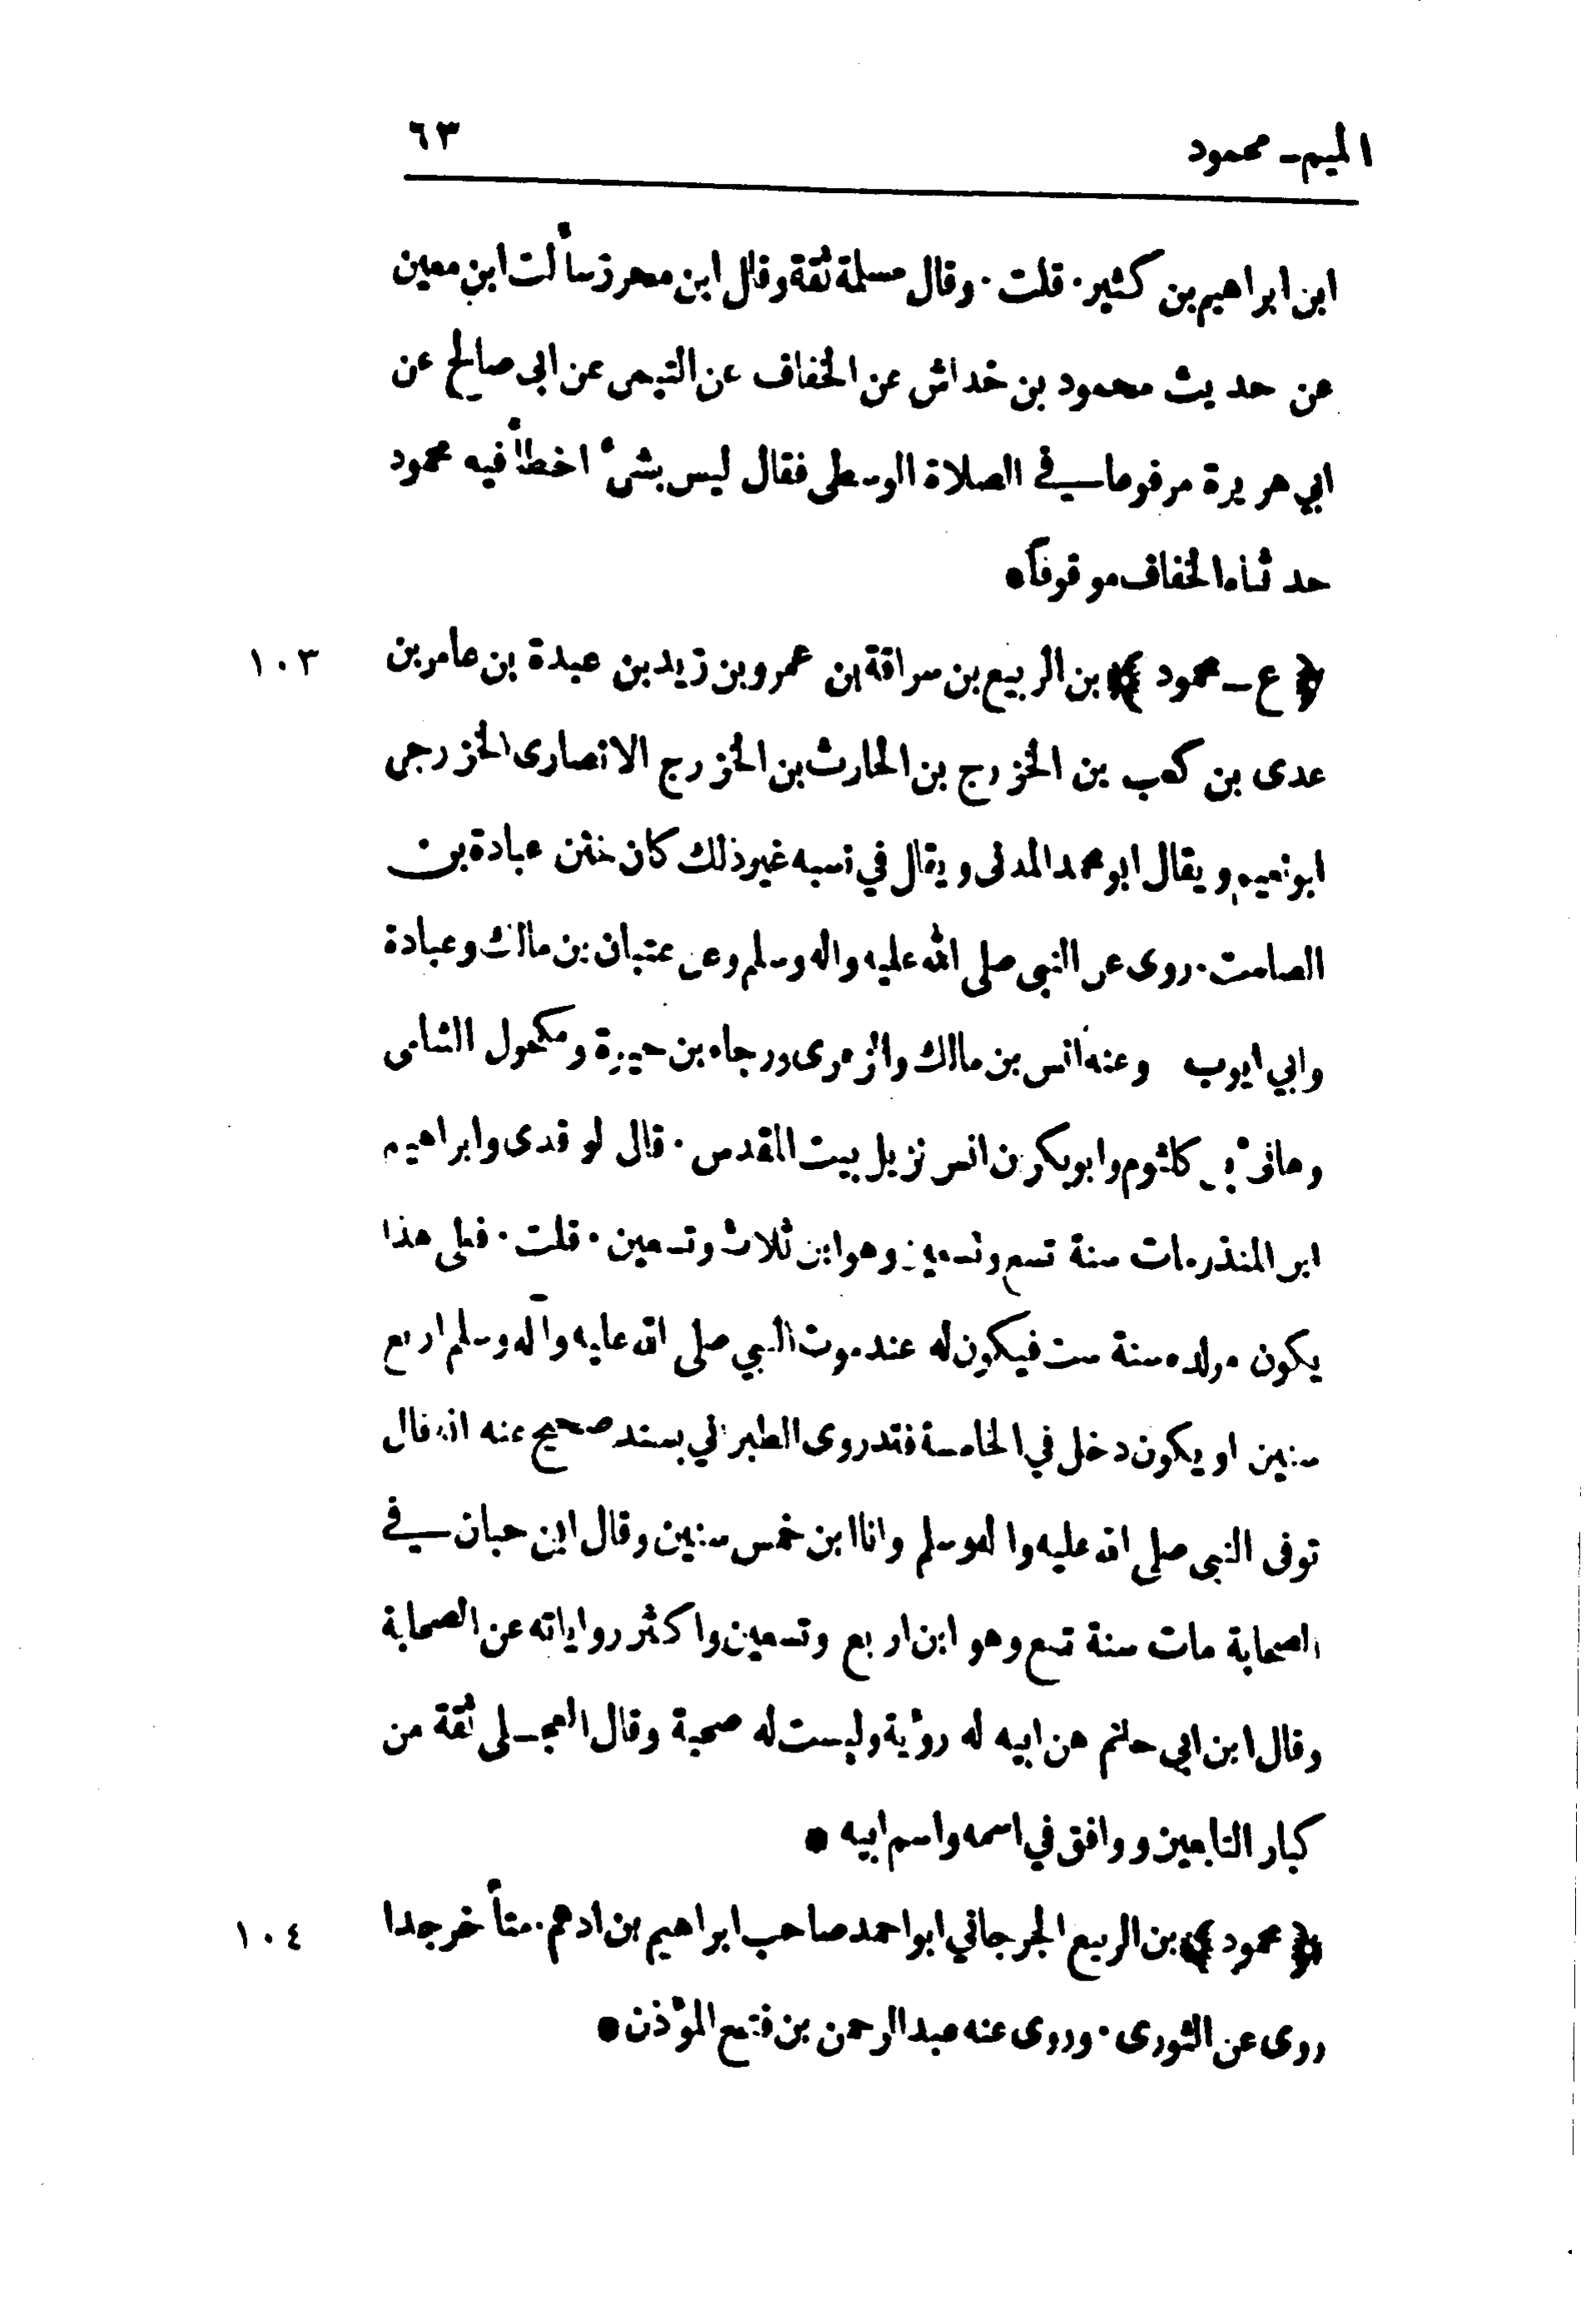 الميم ـ محمود ٦٣
ابن ابراهيم بن كثير ٠ قلت ٠ وقال مسلمة ثقة وقال ابن محرز سألت ابن معين
عن حديث محمود بن خداش عن الخفاف عن التيمى عن ابى صالح عن
ابي هريرة مرفوعا في الصلاة الوسطى فقال ليس بشىء اخطأ فيه محمود
حدثناه الخفاف موقوفاً ●
﴿ ع ـ محمود ﴾ بن الربيع بن سراقة بن عمرو بن زيد بن عبدة بن عامر بن ١٠٣
عدى بن كعب بن الخزرج بن الحارث بن الخزرج الانصارى الخزرجى
ابو نعيم ويقال ابو محمد المدنى ويقال في نسبه غير ذلك كان ختن عبادة بن
الصامت ٠ روى عن النبى صلى الله عليه واله وسلم وعن عتبان بن مالك وعبادة
وابي ايوب وعنه انس بن مالك والزهرى ورجاء بن حيوة ومكحول الشامى
وهانىء بن كلثوم وابو بكر بن انس نزيل بيت المقدس ٠ قال لو قدى وابراهيم
ابن المنذر مات سنة تسع وتسعين وهو ابن ثلاث وتسعين ٠ قلت ٠ فعلى هذا
يكون مولده سنة ست فيكون له عند موت النبي صلى الله عليه وآله وسلم اربع
سنين او يكون دخل في الخامسة فقد روى الطبراني بسند صحيح عنه انه قال
توفى النبى صلى الله عليه واله وسلم وانا ابن خمس سنين وقال ابن حبان في
الصحابة مات سنة تسع وهو ابن اربع وتسعين واكثر رواياته عن الصحابة
وقال ابن ابي حاتم عن ابيه له رؤية وليست له صحبة وقال العجلى ثقة من
كبار التابعين ووافق في اسمه واسم ابيه ●
﴿ محمود ﴾ بن الربيع الجرجاني ابو احمد صاحب ابراهيم بن ادهم ٠ متأخر جدا ١٠٤
روى عن الثورى ٠ وروى عنه عبد الرحمن بن فتح المؤذن ●